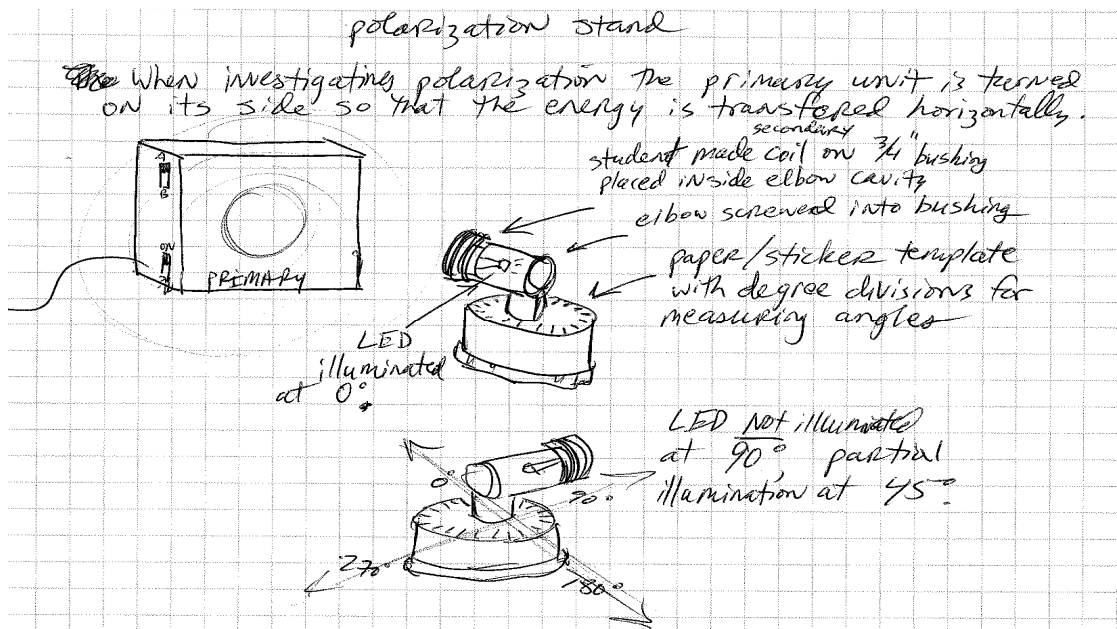 polarization stand
When investigating polarization the primary unit is turned
on its side so that the energy is transfered horizontally.
secondary
student made coil on 3/4" bushing
placed inside elbow cavity
elbow screwed into bushing
A
B
ON
PRIMARY
paper/sticker template
with degree divisions for
measuring angles
LED
illuminated
at 0°.
LED Not illuminated
at 90°, partial
illumination at 45°.
0°
90°
270°
180°